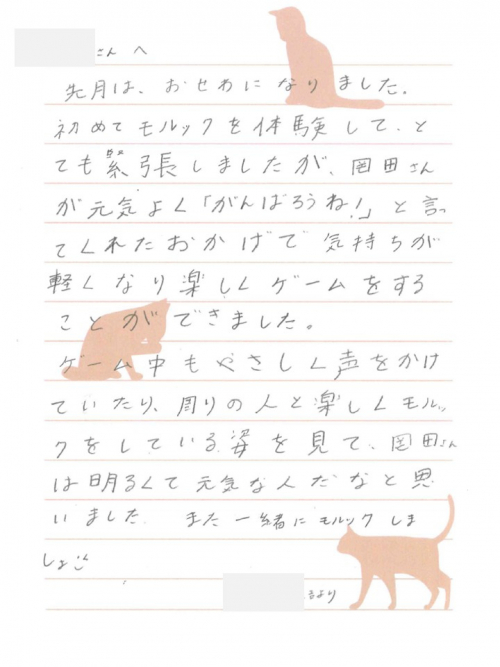 さんへ
先月は、おせわになりました。
初めてモルックを体験して、と
ても緊張しましたが、岡田さん
が元気よく「がんばろうね!」と言っ
てくれたおかげで気持ちが
軽くなり楽しくゲームをする
ことができました。
ゲーム中もやさしく声をかけ
ていたり、周りの人と楽しくモルッ
クをしている姿を見て、岡田さん
は明るくて元気な人だなと思
いました。また一緒にモルックしま
しょう
より